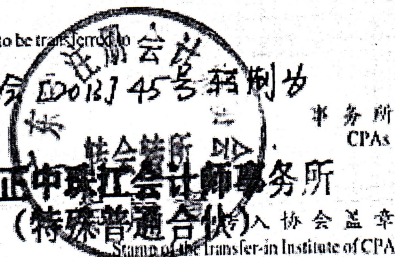 to be transferred to
会[2013]45号转制为
事务所
CPAs
转会转所
正中珠江会计师事务所
(特殊普通合伙)
转入协会盖章
Stamp of the Transfer-in Institute of CPA